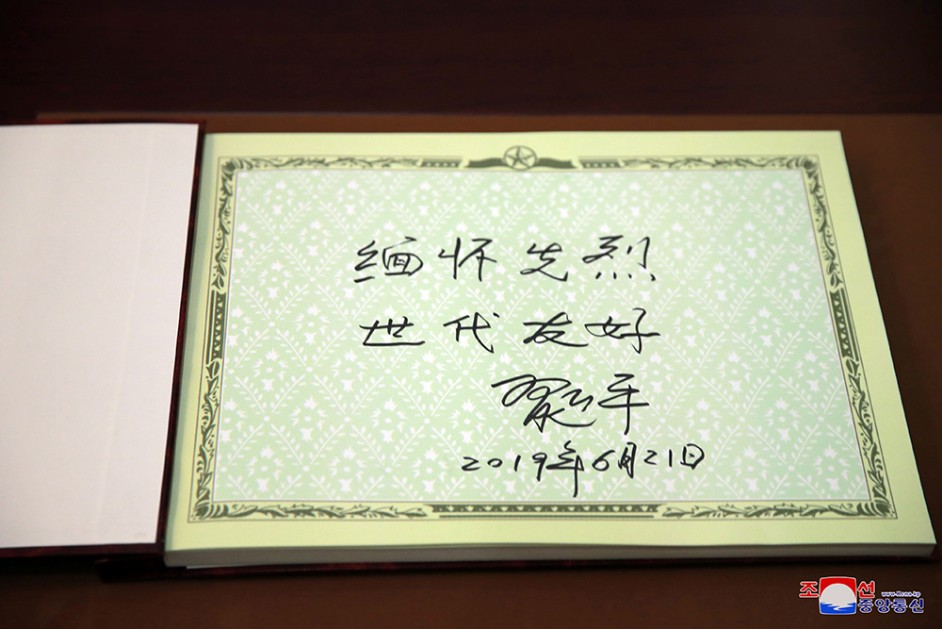 缅怀先烈
世代友好
習近平
2019年6月21日
조선 www.kcna.kp
중앙통신